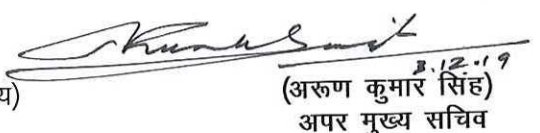 3.12.19
य)
(अरूण कुमार सिंह)
अपर मुख्य सचिव